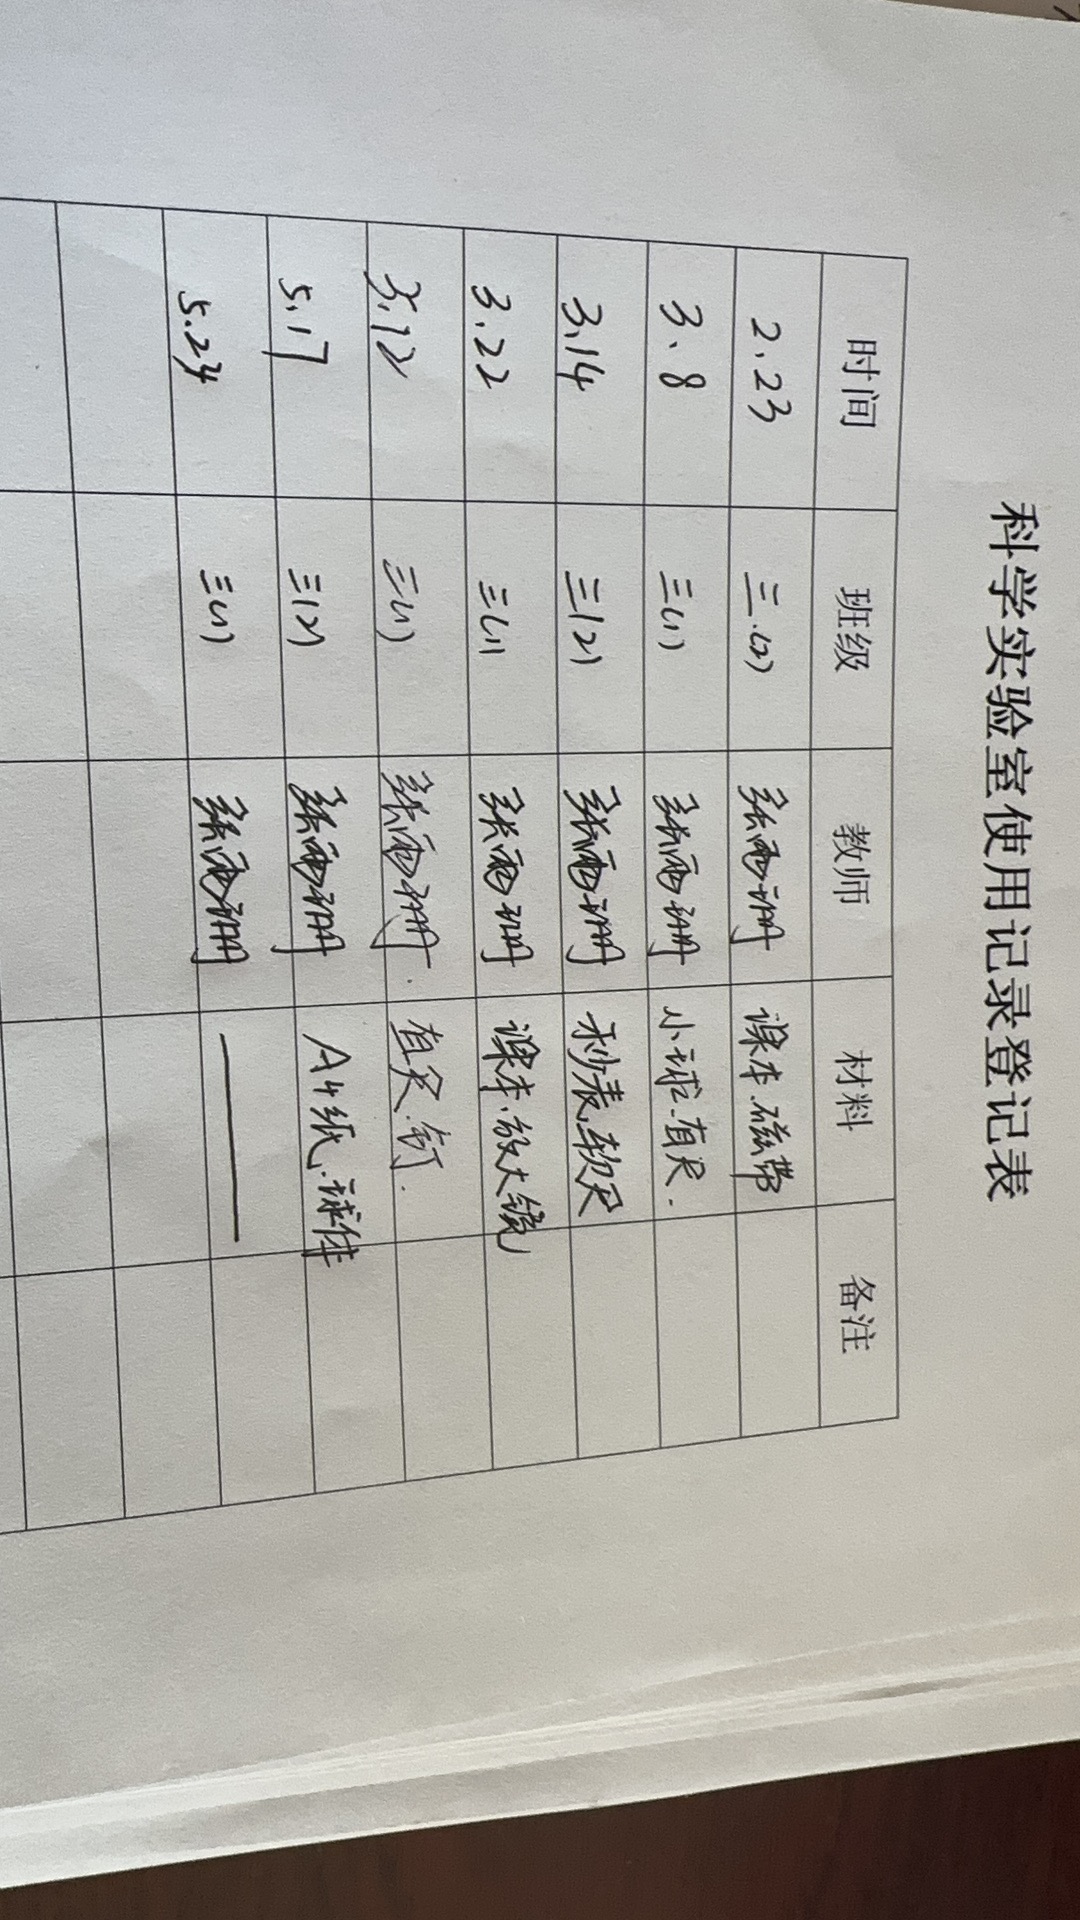 科学实验室使用记录登记表
时间 班级 教师 材料 备注
2.23 三.(2) 张雨珊 课本.磁带
3、8 三(1) 张雨珊 小球.直尺.
3、14 三(2) 张雨珊 秒表.软尺
3.22 三(1) 张雨珊 课本.放大镜
三(1) 张雨珊. 直尺.钉.
5.17 三(2) 张雨珊 A4纸.球体
三(1) 张雨珊 ——